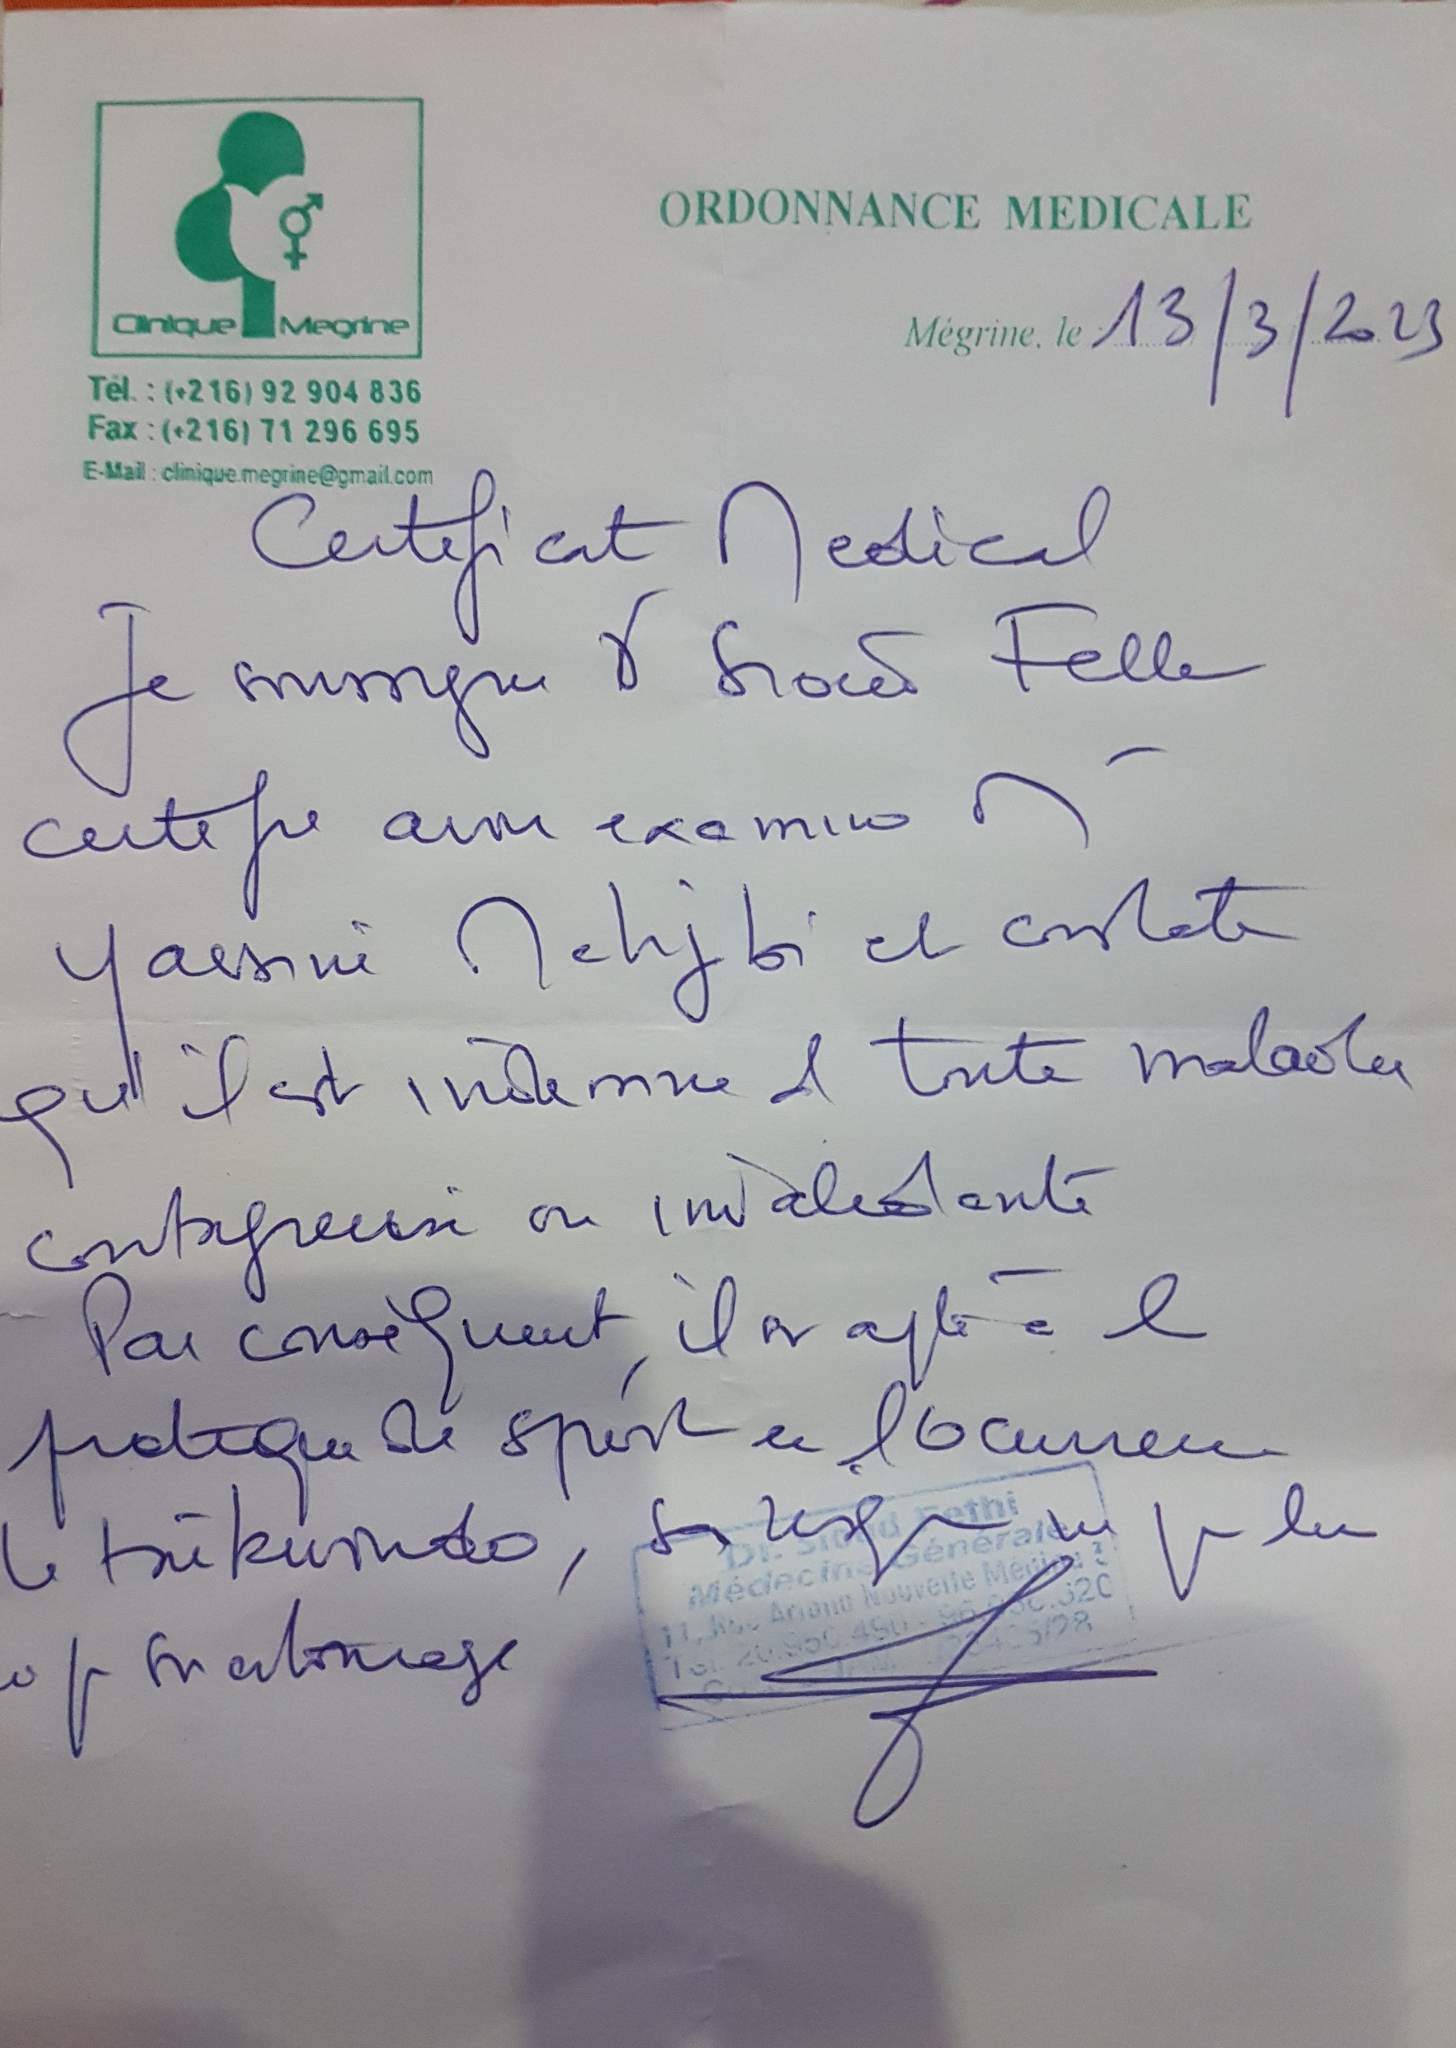 Clinique Megrine
Tél. : (+216) 92 904 836
Fax : (+216) 71 296 695
E-Mail : clinique.megrine@gmail.com
ORDONNANCE MEDICALE
Mégrine, le 13/3/2023
Certificat Medical
Je soussigné Dr
certifie avoir examiné Mr
Yassine Mehjbi et constate
qu'il est indemne de toute maladie
contagieuse ou invalidante
Par conséquent, il est apte à la
pratique de sport en l'occurrence
le taekwondo,
Dr. Sioud Fethi
Médecine Générale
11, Rue Ariana Nouvelle Médina 3